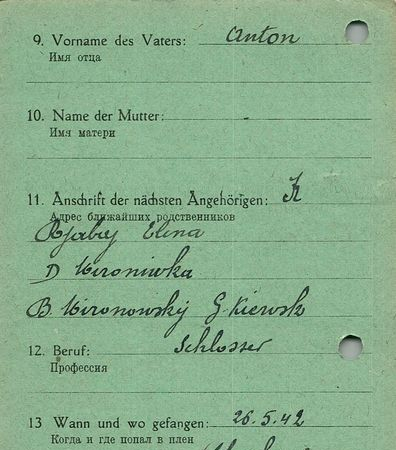 9. Vorname des Vaters: Anton
Имя отца
10. Name der Mutter: -
Имя матери
11. Anschrift der nächsten Angehörigen: K
Адрес ближайших родственников
Rjabuj Elena
D Mironiwka
B. Mironowskij G. Kiewsk
12. Beruf: Schlosser
Профессия
13 Wann und wo gefangen: 26.5.42
Когда и где попал в плен